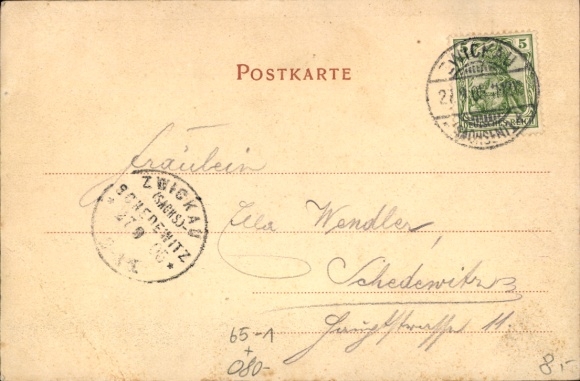 POSTKARTE
5
ZWICKAU
(SACHSEN)
Fräulein
Ella Wendler,
Schedewitz
Hauptstrasse 11.
ZWICKAU
(SACHS)-
SCHEDEWITZ
27 9 05
65-1
+
080-
8,-